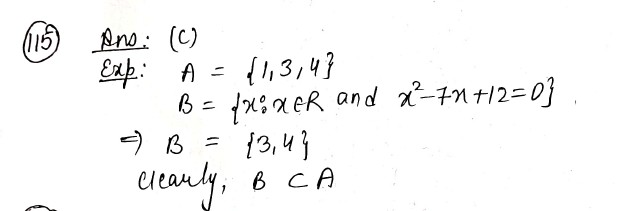 115 Ans: (C)
Exp: A = {1,3,4}
B = {x: x∈R and x²-7x+12=0}.
⇒ B = {3,4}
Clearly, B ⊂ A